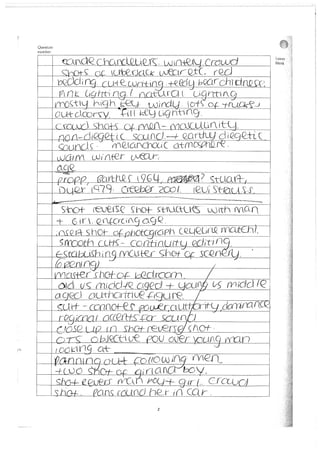 Question
number
Leave
blank
candle chandeliers. wintery crowd
shots of lumberjack wear etc. red
bedding cute writing + teddy bear childness.
pink lighting / natural lighting
mostly high key windy lots of trucks +
outdoorsy. fill key lighting.
crowd shots of men - masculinity
non-diegetic sound → earthy diegetic
sounds melancholic atmosphere.
warm winter wear.
age
propp, Barthes 1964, Stuart,
Dyer 1979. Creeber 2001. levi strauss.
shot reverse shot structures with man
+ girl enforcing age.
insert shot of photograph (eyeline match).
smooth cuts - continuity editing
establishing master shot of scenery.
(opening)
master shot of bedroom.
old vs middle aged + young vs middle
aged authoritive figure.
suit - connotes power, authority, dominance
regional accents for sound
close up in shot reverse shot
OTS objective POV over young man
looking at
panning out following men.
+ two shot of girl and boy.
shot revers man boy + girl. crowd
shot. pans round her in car.
2